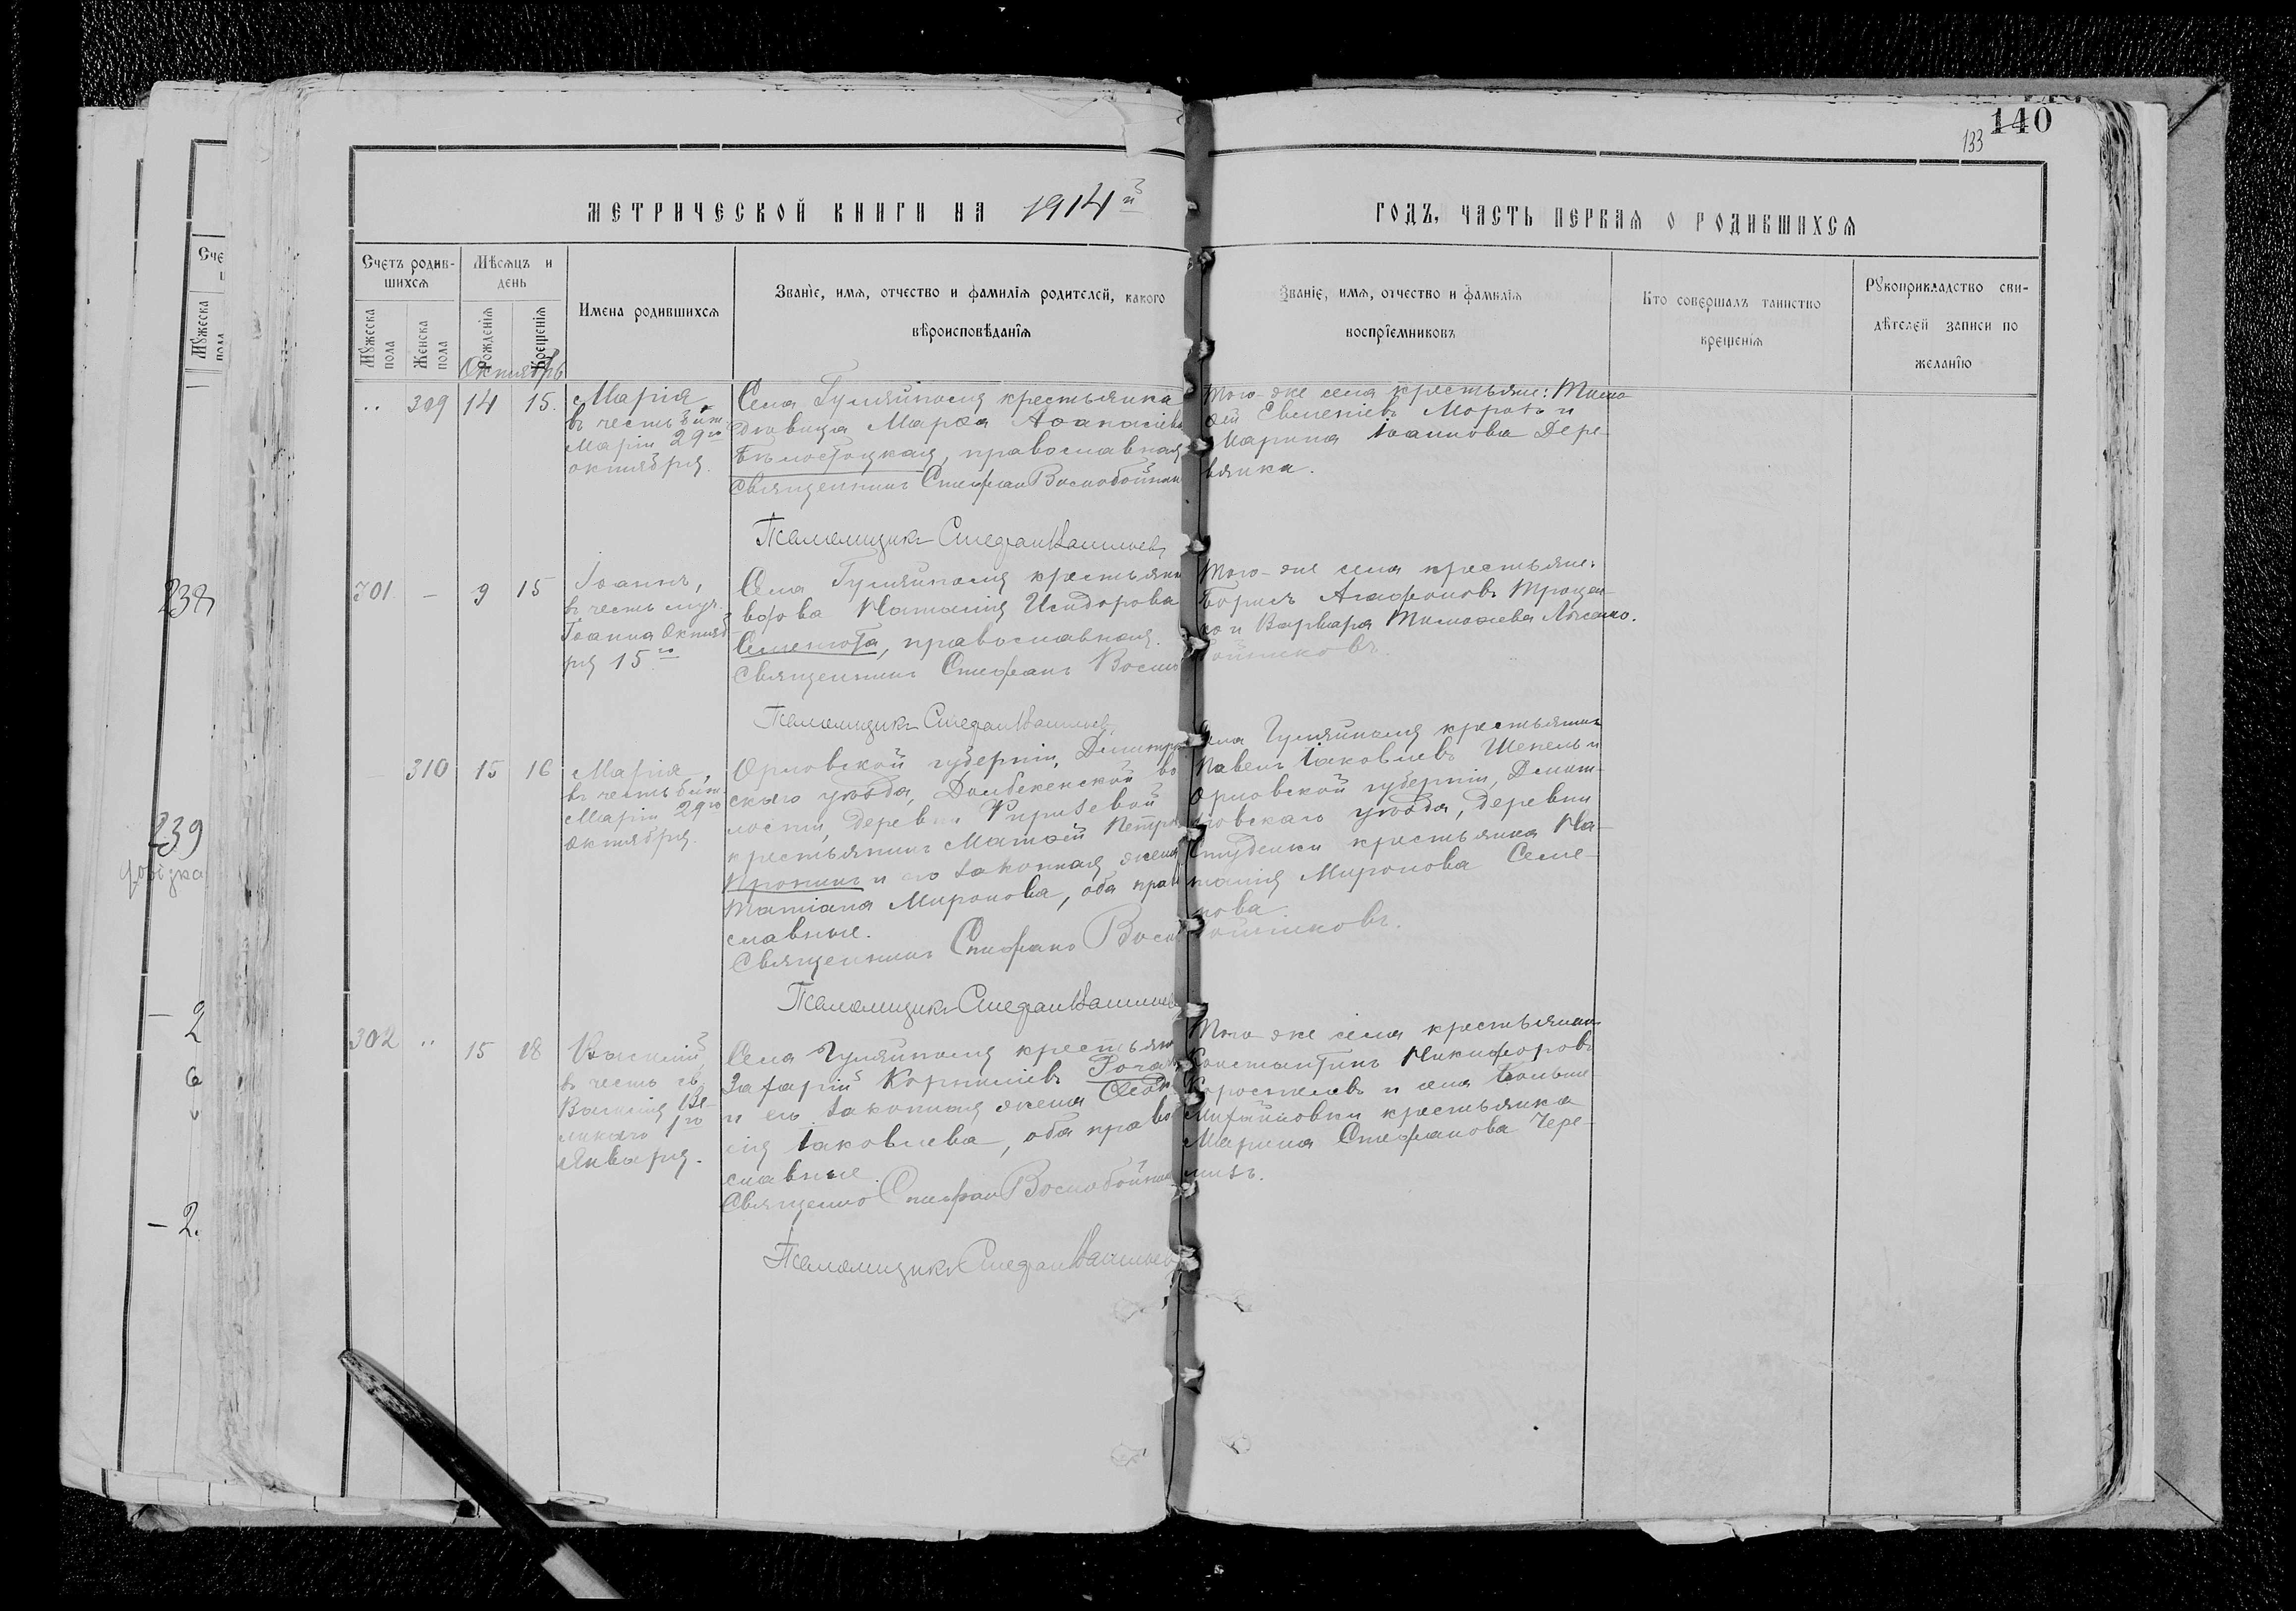 140
133
МЕТРИЧЕСКОЙ КНИГИ НА 1914й
ГОДЪ, ЧАСТЬ ПЕРВАЯ О РОДИВШИХСЯ
Счетъ родив-
шихся
Мѣсяцъ и
день
Мужеска пола
Женска пола
Рожденія
Крещенія
Имена родившихся
Званіе, имя, отчество и фамилія родителей, какого
вѣроисповѣданія
Званіе, имя, отчество и фамилія
воспріемниковъ
Кто совершалъ таинство
крещенія
Рукоприкладство сви-
дѣтелей записи по
желанію
Октябрь
309 14 15.
Марія
въ честь
Маріи 29го
октября.
Села Гуляйполя крестьянка
дѣвица Марѳа Аѳанасіева
Бѣлостоцкая, православная
Священникъ Стефан Воскобойник
Псаломщикъ Стефан Васильев
Того-же села крестьяне: Тимо
ѳей Евменіевъ Морозъ и
Марина Іоаннова Дере-
вянка.
301 – 9 15
Іоаннъ,
въ честь муч.
Іоанна Октяб
ря 15го
Села Гуляйполя крестьянка
вдова Наталія Исидорова
православная.
Священникъ Стефанъ Воско
бойниковъ.
Псаломщикъ Стефан Васильев
Того-же села крестьяне:
Борисъ Агафоновъ Троцен-
ко и Варвара Тимоѳеева
310 15 16
Марія,
въ честь
Маріи 29го
октября.
Орловской губерніи, Дмитро
скаго уѣзда, во
лости, деревни
крестьянинъ Матѳей Петровъ
Пронинъ и его законная жена
Татіана Миронова, оба право
славные.
Священникъ Стефанъ Воско
бойниковъ.
Псаломщикъ Стефан Васильев
Села Гуляйполя крестьянинъ
Павелъ Іаковлевъ Шепель и
Орловской губерніи, Дмит-
ровскаго уѣзда, деревни
Студенки крестьянка На-
талія Миронова Семе-
нова
302 15 18
Василій,
въ честь св.
Василія Ве-
ликаго 1го
Января.
Села Гуляйполя крестьян
Захарій Корниліевъ
и его законная жена Ѳеодо
сія Іаковлева, оба право
славные.
Священно Стефан Воскобойник
Псаломщикъ Стефан Васильев
Того-же села крестьянин
Константинъ Никифоровъ
Коростелевъ и села Больше-
Михайловки крестьянка
Марина Стефанова Чере-
238
239
2
6
– 2.